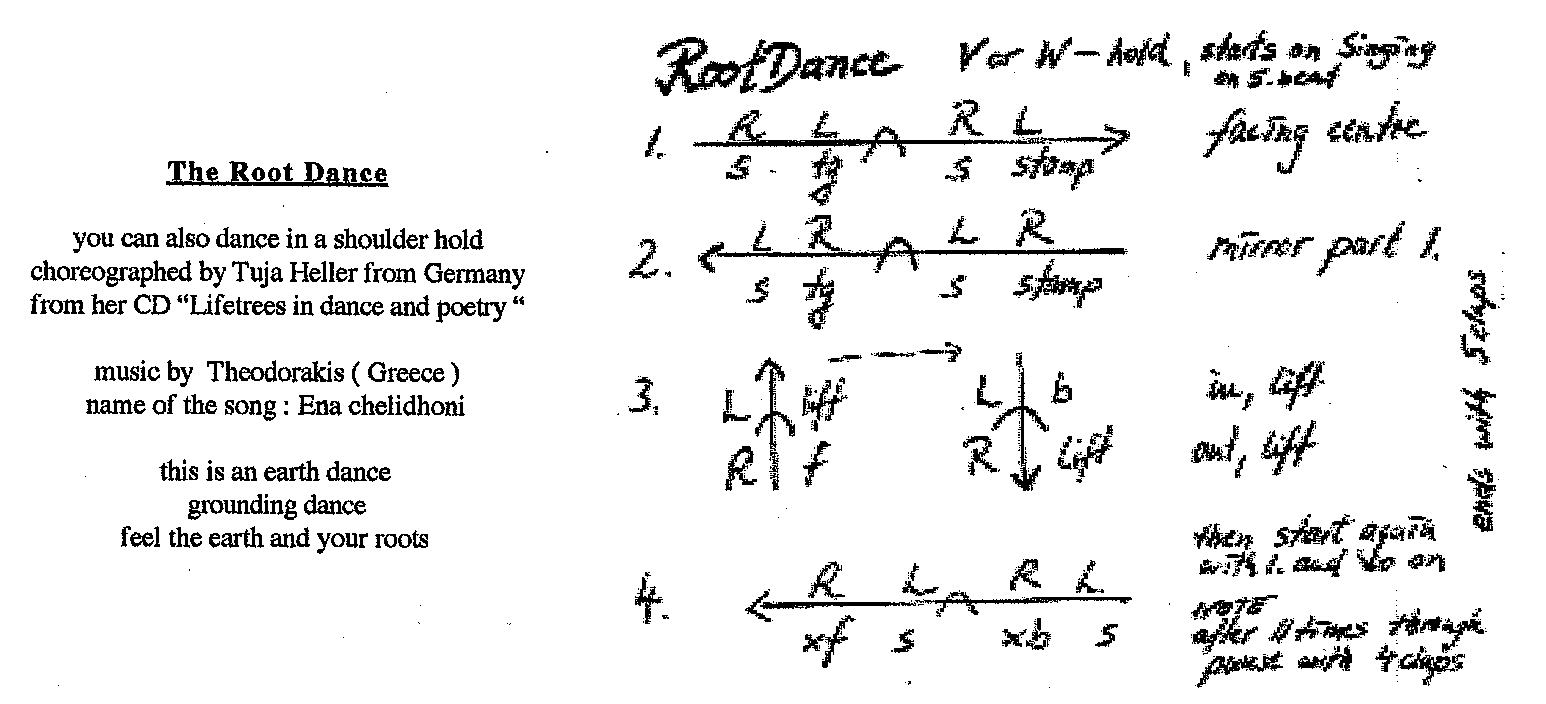 The Root Dance
you can also dance in a shoulder hold
choreographed by Tuja Heller from Germany
from her CD "Lifetrees in dance and poetry "
music by Theodorakis ( Greece )
name of the song : Ena chelidhoni
this is an earth dance
grounding dance
feel the earth and your roots
Root Dance V or W - hold, starts on Singing
on 5. beat
R L R L
1. facing centre
s s stomp
L R L R
2. mirror part 1.
s s stomp
3. L lift L b in, lift
R f R lift out, lift
ends with 5 claps
then start again
with 1. and so on
R L R L
4. NOTE
xf s xb s after 11 times through
with 4 claps